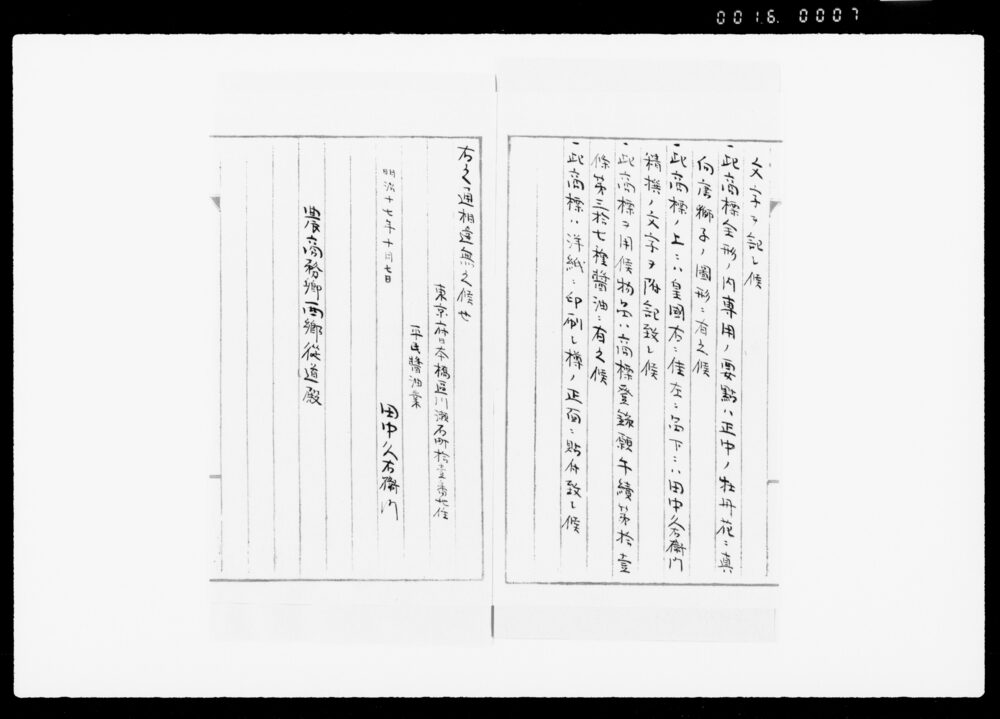 0016 0007
文字ヲ記し候
一此商標全形ノ内専用ノ要點ハ正中ノ牡丹花ニ真
向唐獅子ノ圖形ニ有之候
一此商標ノ上ニハ皇國右ニ佳左ニ名下ニハ田中久右衛門
精撰ノ文字ヲ附記致し候
一此商標ヲ用候物品ハ商標登録願手續第拾壹
條第三拾七種醤油ニ有之候
一此商標ハ洋紙ニ印刷し樽ノ正面ニ貼付致し候
右之通相違無之候也
東京府日本橋區川瀬石町拾壹番地住
平民醤油業
明治十七年十月七日
田中久右衛門
農商務卿西郷従道殿